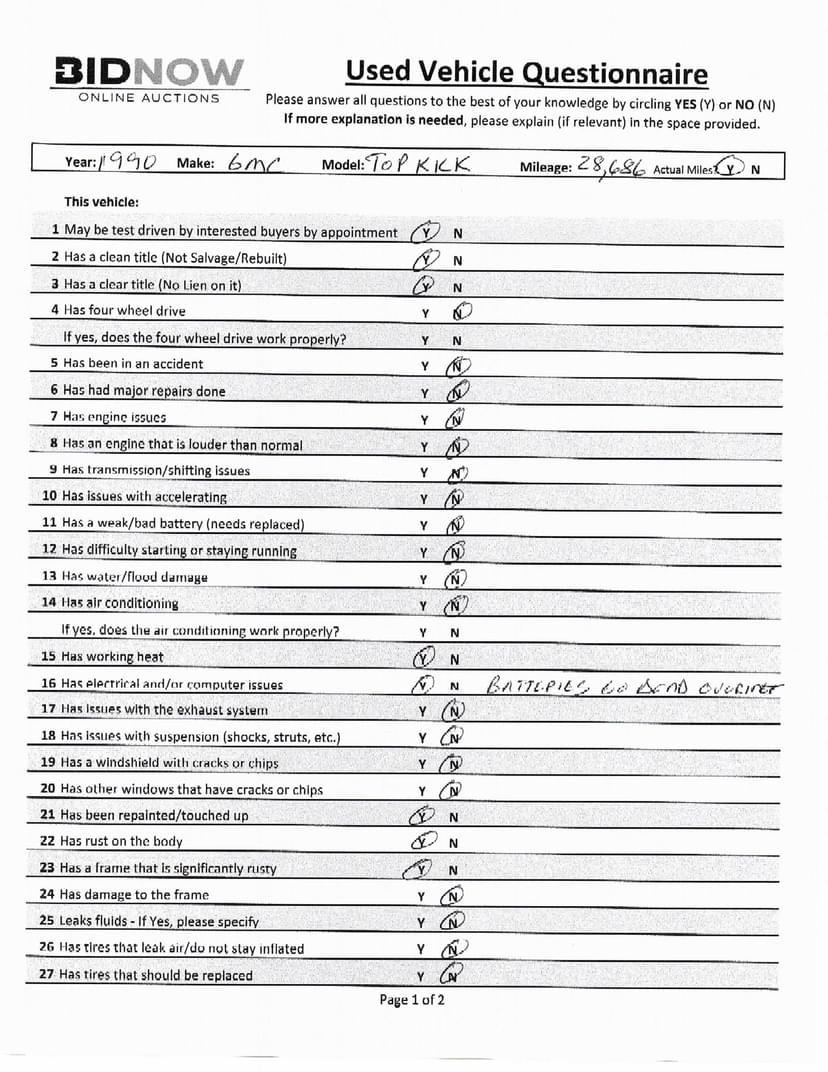 BIDNOW
ONLINE AUCTIONS
Used Vehicle Questionnaire
Please answer all questions to the best of your knowledge by circling YES (Y) or NO (N)
If more explanation is needed, please explain (if relevant) in the space provided.
Year: 1990 Make: GMC Model: TOPKICK Mileage: 28,686 Actual Miles? Y N
This vehicle:
1 May be test driven by interested buyers by appointment Y N
2 Has a clean title (Not Salvage/Rebuilt) Y N
3 Has a clear title (No Lien on it) Y N
4 Has four wheel drive Y N
If yes, does the four wheel drive work properly? Y N
5 Has been in an accident Y N
6 Has had major repairs done Y N
7 Has engine issues Y N
8 Has an engine that is louder than normal Y N
9 Has transmission/shifting issues Y N
10 Has issues with accelerating Y N
11 Has a weak/bad battery (needs replaced) Y N
12 Has difficulty starting or staying running Y N
13 Has water/flood damage Y N
14 Has air conditioning Y N
If yes, does the air conditioning work properly? Y N
15 Has working heat Y N
16 Has electrical and/or computer issues Y N BATTERIES GO DEAD
17 Has issues with the exhaust system Y N
18 Has issues with suspension (shocks, struts, etc.) Y N
19 Has a windshield with cracks or chips Y N
20 Has other windows that have cracks or chips Y N
21 Has been repainted/touched up Y N
22 Has rust on the body Y N
23 Has a frame that is significantly rusty Y N
24 Has damage to the frame Y N
25 Leaks fluids - If Yes, please specify Y N
26 Has tires that leak air/do not stay inflated Y N
27 Has tires that should be replaced Y N
Page 1 of 2